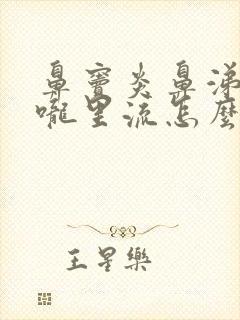 鼻窦炎鼻涕
嚨里流怎麽
王星樂